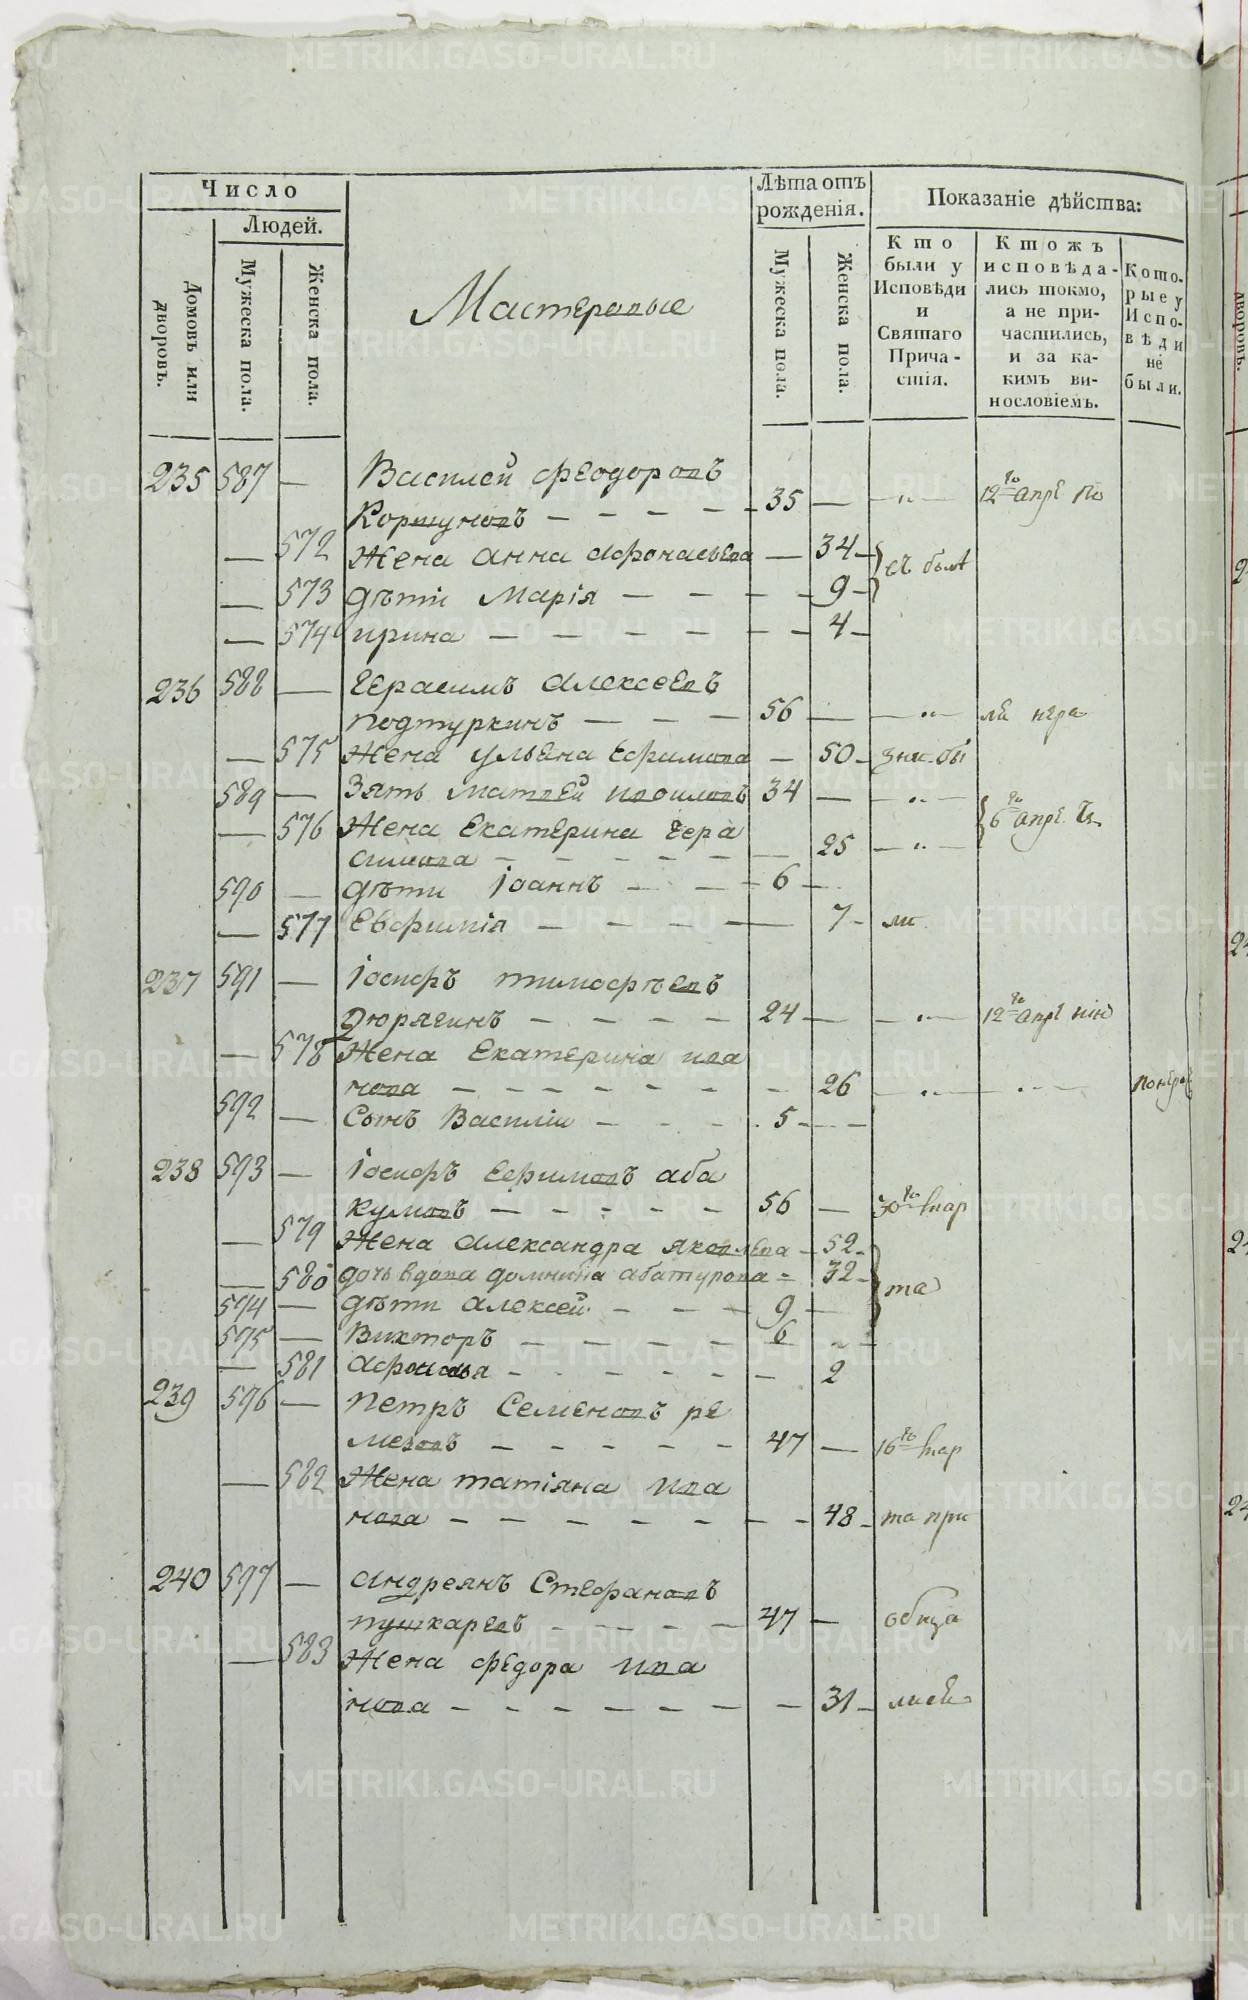 Число
Людей.
Домовъ или дворовъ.
Мужеска пола.
Женска пола.
Мастеровые
Лѣта отъ рожденія.
Мужеска пола.
Женска пола.
Показаніе дѣйства:
Кто были у Исповѣди и Святаго Прича-стія.
Ктожъ исповѣда-лись токмо, а не при-частились, и за ка-кимъ ви-нословіемъ.
Кото-рые у Испо-вѣди не были.
235 587 — Василей Феодоровъ
Коршуновъ — 35 — 12го апре по
— 572 Жена Анна Афонасьева — 34
— 573 дѣти Марія — 9
— 574 Ирина — 4
236 588 — Герасимъ Алексеевъ
Подтуркинъ — 56 —
— 575 Жена Ульяна Ефимова — 50
589 — Зять Матвей 34 —
— 576 Жена Екатерина Гера
симова — 25 — 6го апре
590 — дѣти Іоаннъ — 6 —
— 577 Евфимія — 7 — ли
237 591 — Іосифъ Тимофѣевъ
Дюрягинъ — 24 — 12го апре
— 578 Жена Екатерина Ива
нова — 26
592 — Сынъ Василій — 5 —
238 593 — Іосифъ Ефимовъ Аба
кумовъ — 56 — 30го мар
— 579 Жена Александра Яковлева — 52
— 580 дочь вдова Домнина Абатурова — 32 та
594 — дѣти Алексей — 9 —
595 — Викторъ — 6
— 581 Афонасья — 2
239 596 — Петръ Семеновъ Ре
мезовъ — 47 — 16го мар
— 582 Жена Татіяна Ива
нова — 48 — та при
240 597 — Андреянъ Стефановъ
Пушкаревъ — 47 —
— 583 Жена Федора Ива
нова — 31
METRIKI.GASO-URAL.RU